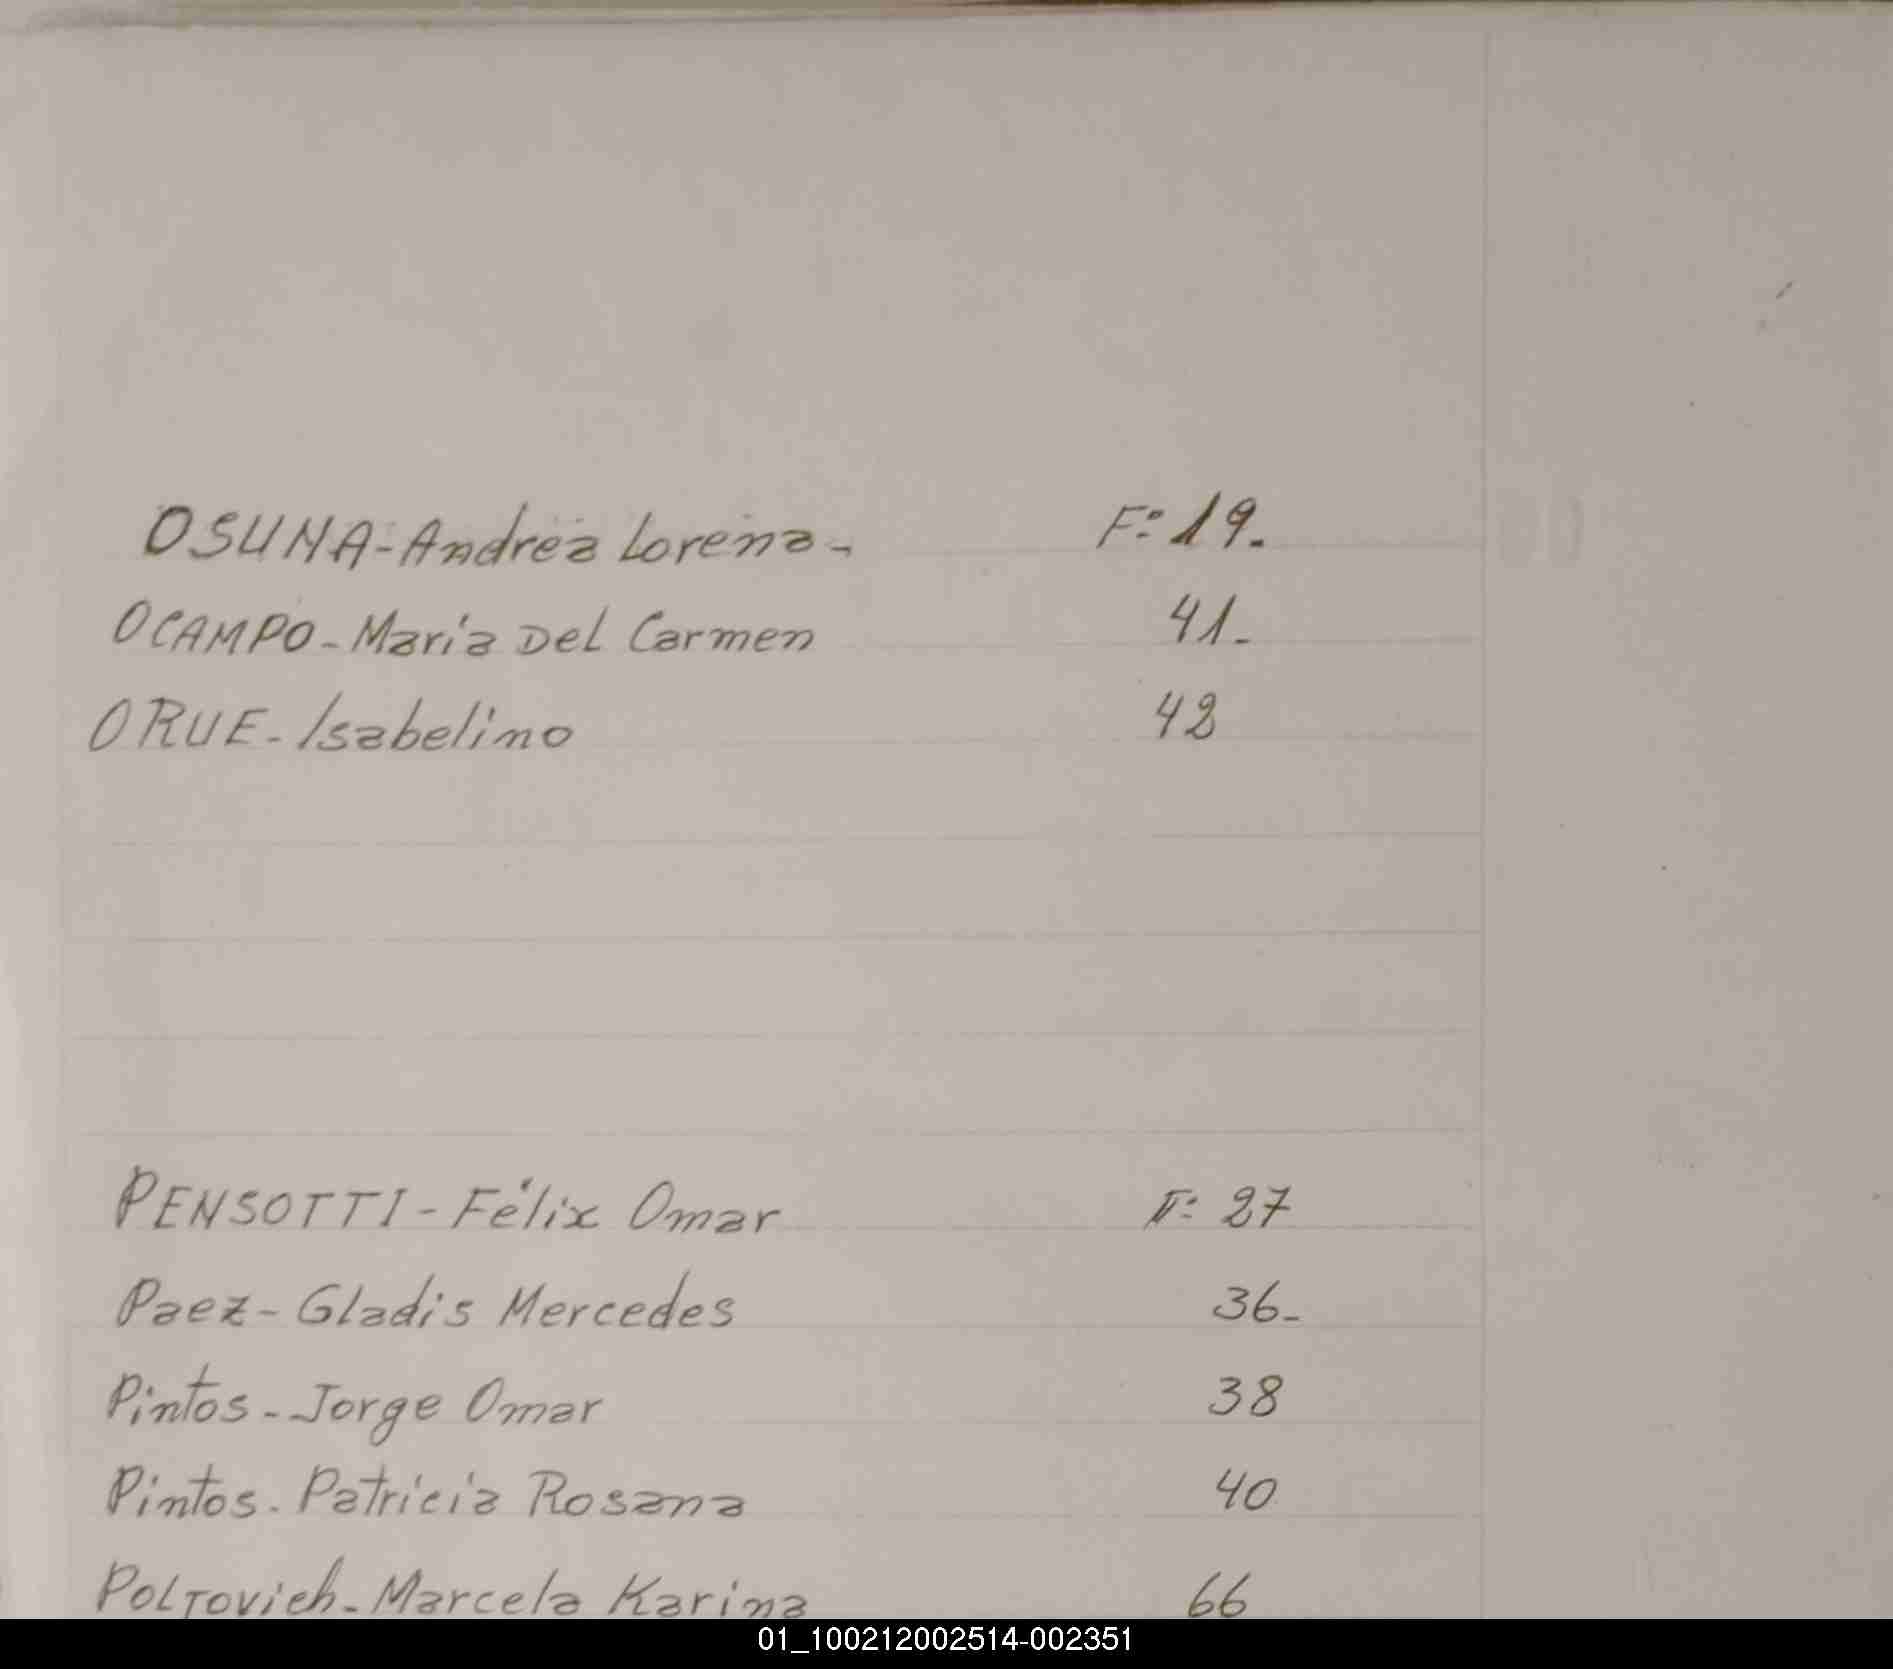 OSUNA-Andrea Lorena- F: 19.
OCAMPO-María Del Carmen 41-
ORUE-Isabelino 42
PENSOTTI-Félix Omar F: 27
Paez-Gladis Mercedes 36-
Pintos-Jorge Omar 38
Pintos-Patricia Rosana 40
Poltovich-Marcela Karina 66
01_100212002514-002351